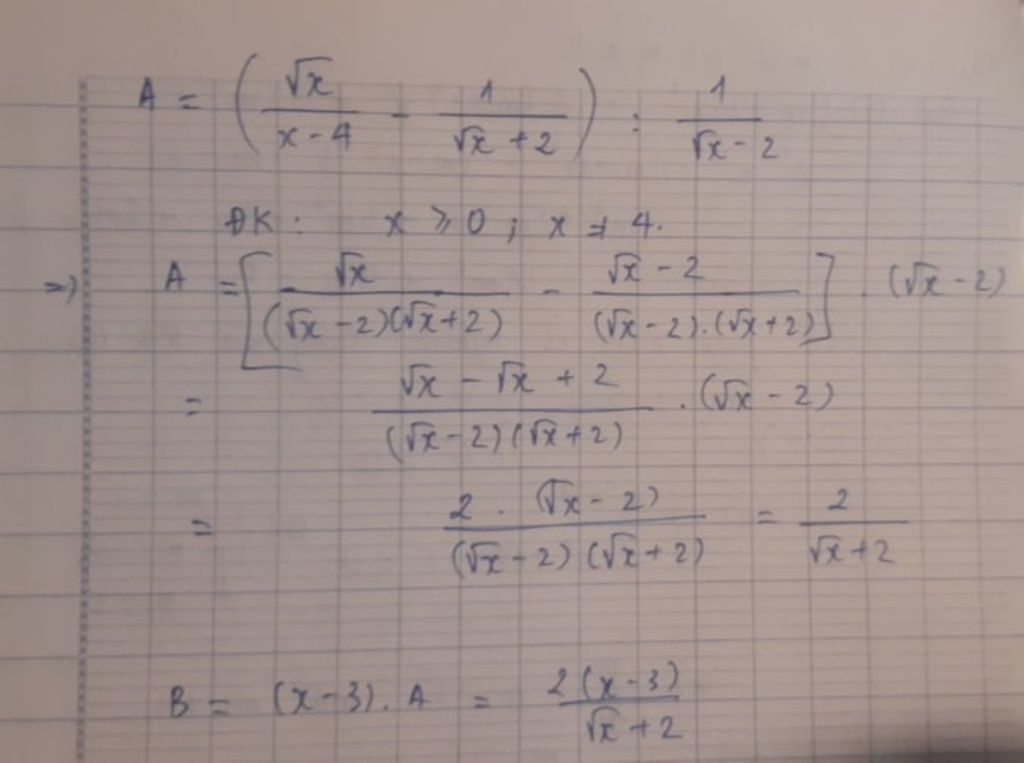 A = ( √x / (x - 4) - 1 / (√x + 2) ) : 1 / (√x - 2)
ĐK : x ≥ 0 ; x ≠ 4.
=> A = [ √x / ((√x - 2)(√x + 2)) - (√x - 2) / ((√x - 2).(√x + 2)) ] . (√x - 2)
= (√x - √x + 2) / ((√x - 2)(√x + 2)) . (√x - 2)
= 2 . (√x - 2) / ((√x - 2)(√x + 2)) = 2 / (√x + 2)
B = (x - 3). A = 2(x - 3) / (√x + 2)